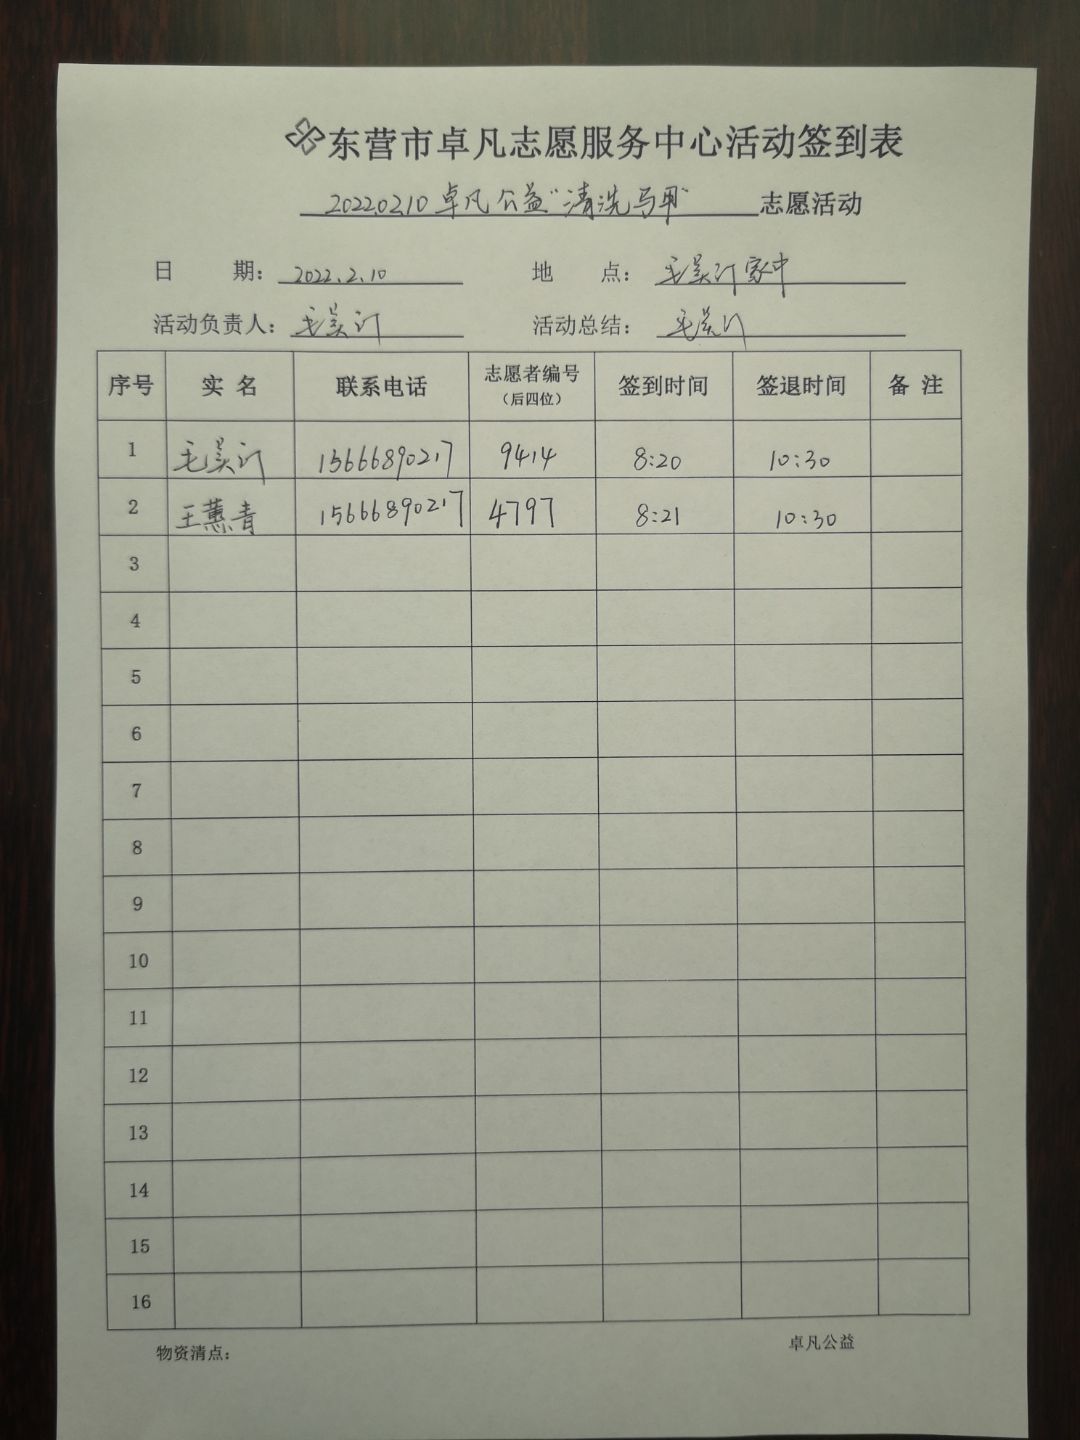 东营市卓凡志愿服务中心活动签到表
20220210 卓凡公益“清洗马甲” 志愿活动
日 期： 2022.2.10 地 点： 毛昊汀家中
活动负责人： 毛昊汀 活动总结： 毛昊汀
序号 实 名 联系电话 志愿者编号（后四位） 签到时间 签退时间 备 注
1 毛昊汀 15666890217 9414 8:20 10:30
2 王蕙青 15666890217 4797 8:21 10:30
3
4
5
6
7
8
9
10
11
12
13
14
15
16
物资清点： 卓凡公益